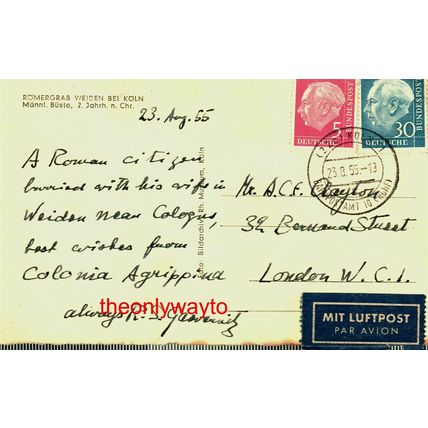 RÖMERGRAB WEIDEN BEI KÖLN
Männl. Büste, 2. Jahrh. n. Chr.
23. Aug. 55
A Roman citizen
buried with his wife in
Weiden near Cologne,
best wishes from
Colonia Agrippina
always
Foto: Bildarchiv Rh. Museum, Köln
5
DEUTSCHE
BUNDESPOST
30
DEUTSCHE
BUNDESPOST
23.8.55.-13
Mr. A.C.F. Clayton
39 Bernard Street
London W.C.1.
MIT LUFTPOST
PAR AVION
theonlywayto